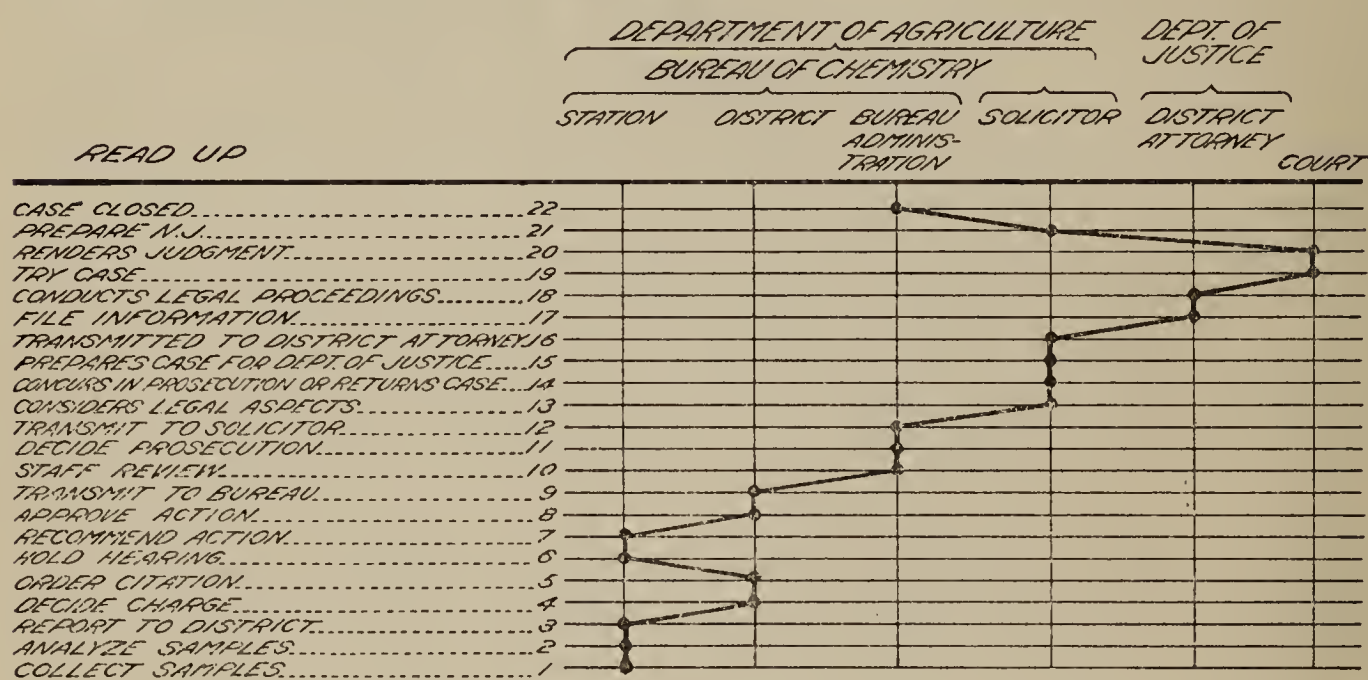 DEPARTMENT OF AGRICULTURE DEPT. OF
JUSTICE
BUREAU OF CHEMISTRY
STATION DISTRICT BUREAU SOLICITOR DISTRICT
ADMINIS- ATTORNEY
READ UP TRATION COURT
CASE CLOSED 22
PREPARE N.J. 21
RENDERS JUDGMENT 20
TRY CASE 19
CONDUCTS LEGAL PROCEEDINGS 18
FILE INFORMATION 17
TRANSMITTED TO DISTRICT ATTORNEY 16
PREPARES CASE FOR DEPT. OF JUSTICE 15
CONCURS IN PROSECUTION OR RETURNS CASE 14
CONSIDERS LEGAL ASPECTS 13
TRANSMIT TO SOLICITOR 12
DECIDE PROSECUTION 11
STAFF REVIEW 10
TRANSMIT TO BUREAU 9
APPROVE ACTION 8
RECOMMEND ACTION 7
HOLD HEARING 6
ORDER CITATION 5
DECIDE CHARGE 4
REPORT TO DISTRICT 3
ANALYZE SAMPLES 2
COLLECT SAMPLES 1